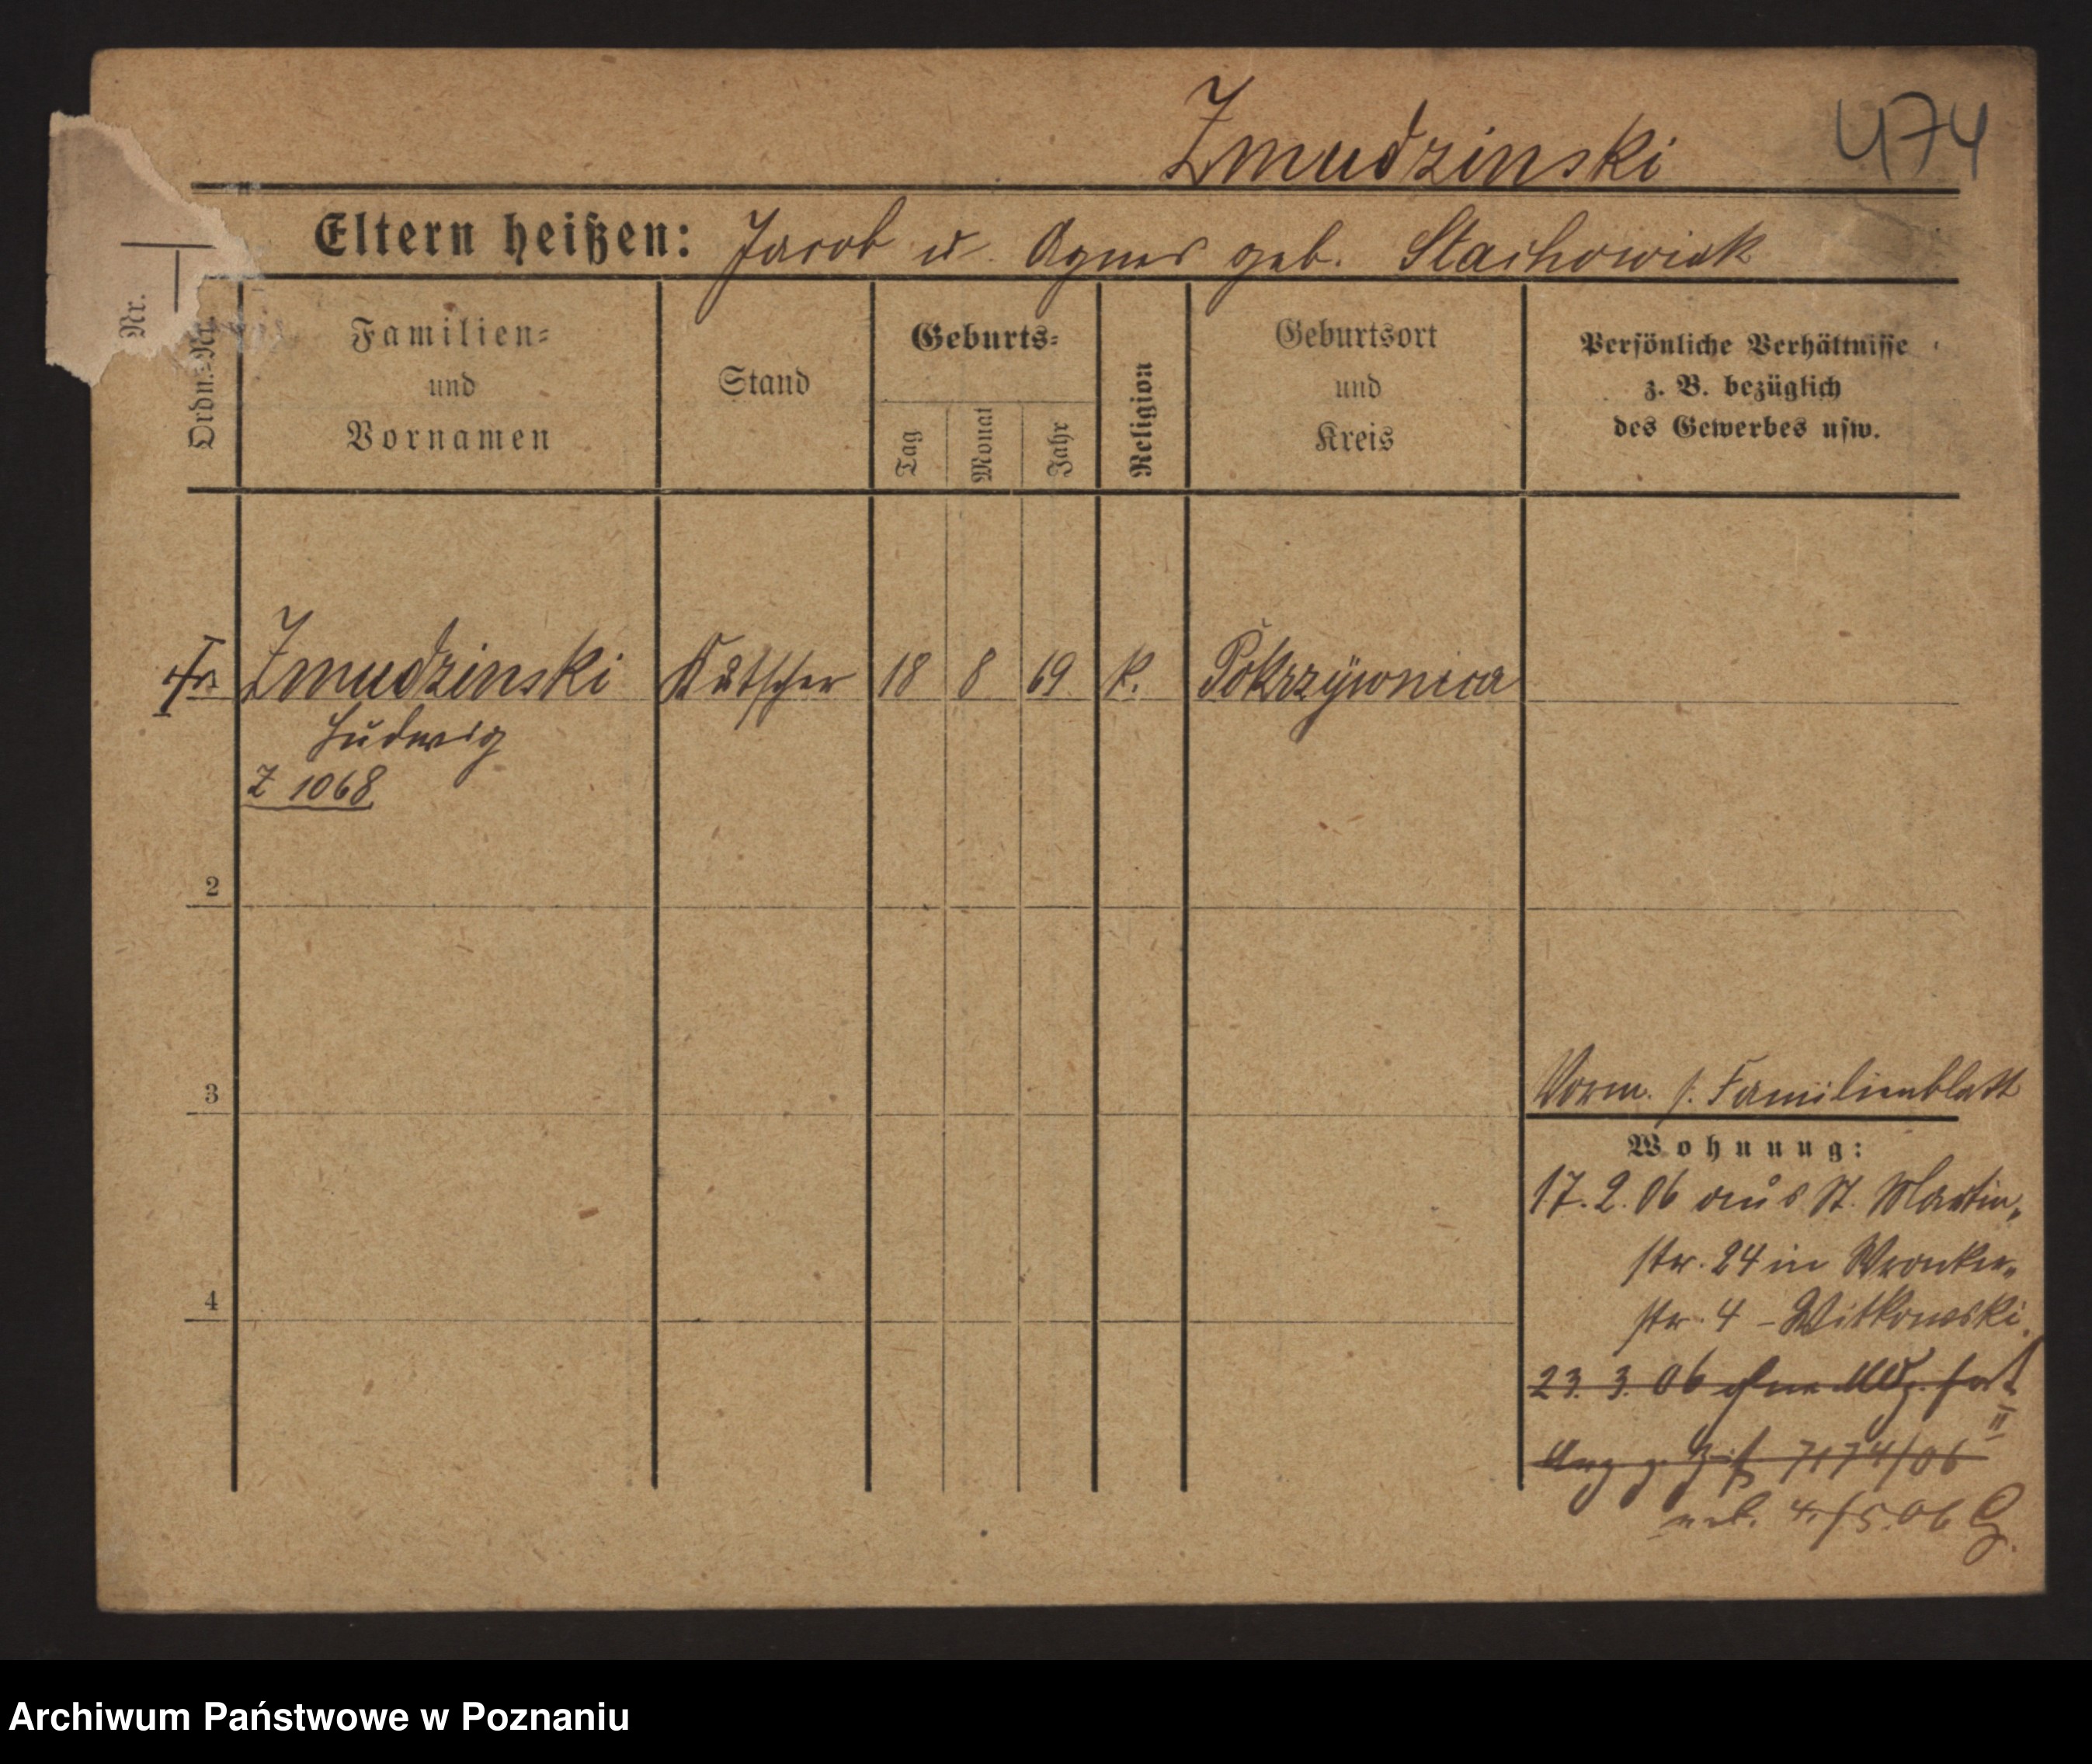 Zmudzinski
474
Eltern heißen: Jacob u. Agnes geb. Stachowiak
Nr.
Ordn.-Nr.
Familien-
und
Vornamen
Stand
Geburts-
Tag
Monat
Jahr
Religion
Geburtsort
und
Kreis
Persönliche Verhältnisse
z. B. bezüglich
des Gewerbes usw.
Zmudzinski Kutscher 18 8 69 k. Pokrzywnica
Ludwig
Z 1068
2
3
4
Vorm. s. Familienblatt
Wohnung:
17. 2. 06 aus St. Martin-
str. 24 in Wronker-
str. 4 - Witkowski
23. 3. 06 ohne Mldg. fort
7174/06 II
4./5. 06
Archiwum Państwowe w Poznaniu